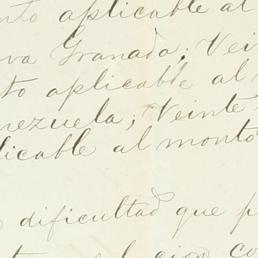 nto aplicable al
va Granada; Vein
to aplicable al m
nezuela; Veinte
licable al monto
dificultad que p